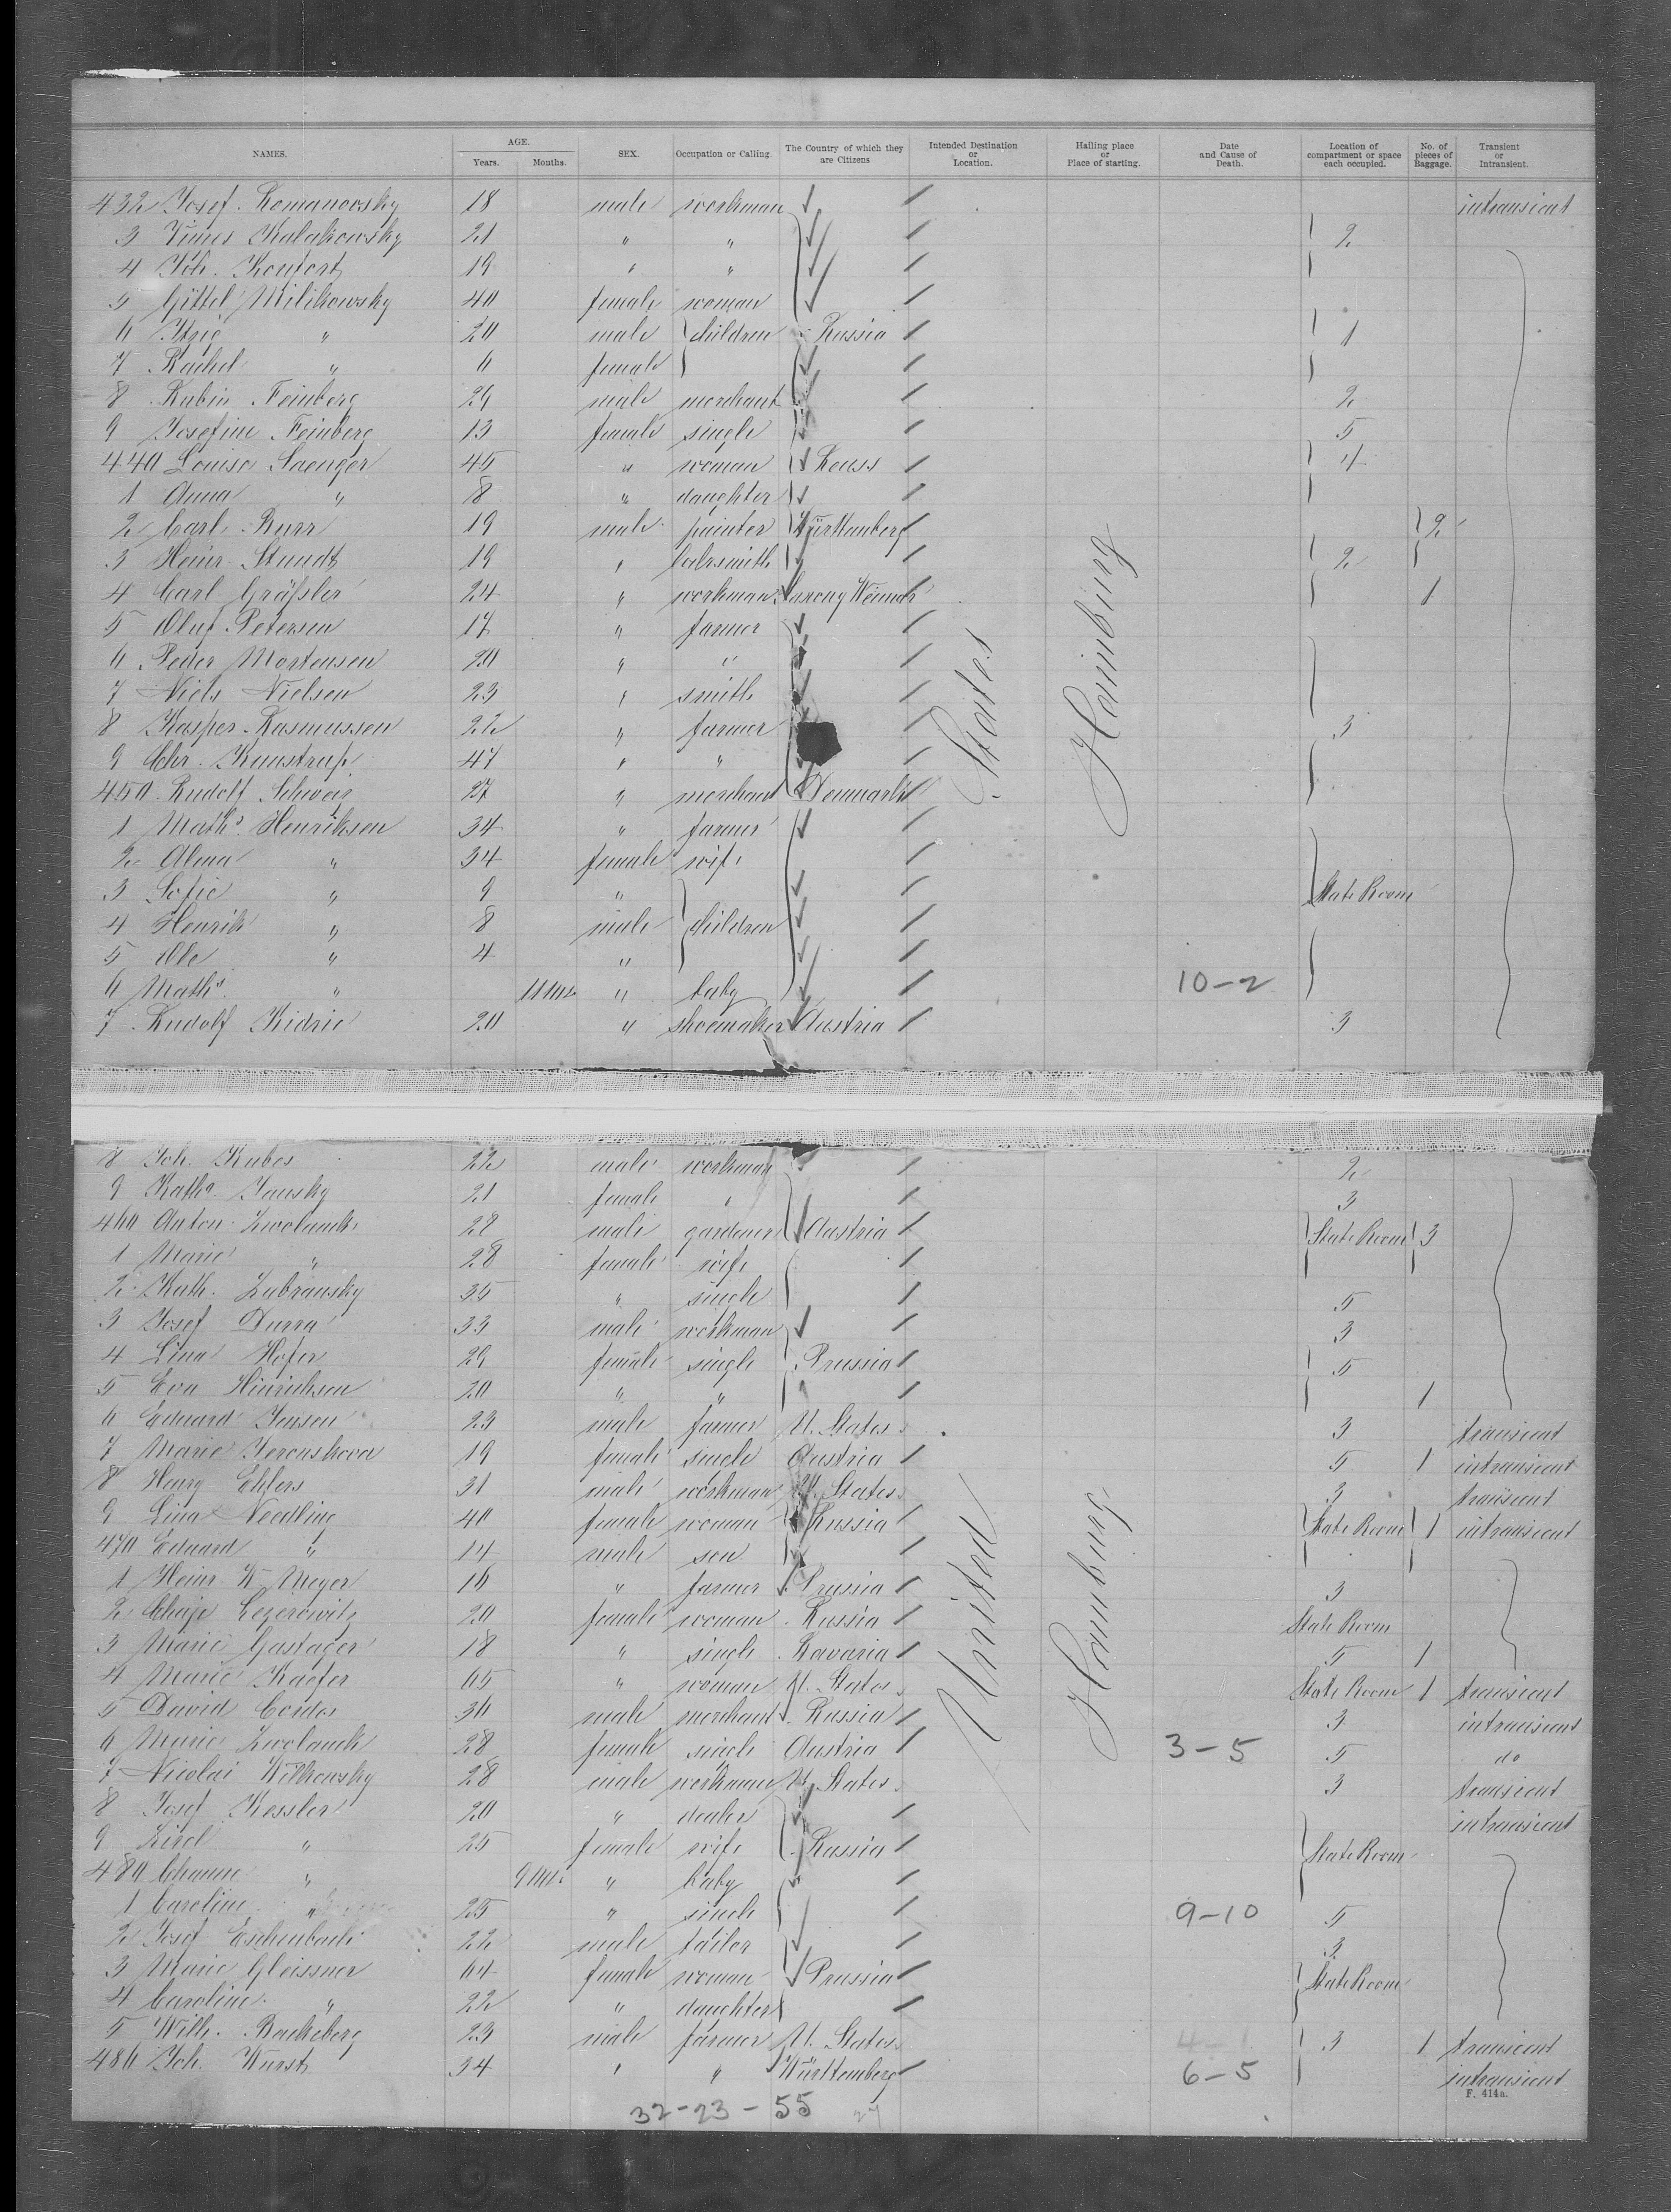 NAMES. AGE. Years. Months. SEX. Occupation or Calling. The Country of which they are Citizens Intended Destination or Location. Hailing place or Place of starting. Date and Cause of Death. Location of compartment or space each occupied. No. of pieces of Baggage. Transient or Intransient.
432 Josef Romanovsky 18 male workman intransient
3 Kalakowsky 21 " " 2
4 Joh. 19 " "
5 Gittel Milikowsky 40 female woman
6 Itzig " 20 male children Russia 1
7 Rachel " 6 female
8 Rubin Feinberg 29 male merchant 2
9 Josefine Feinberg 13 female single 5
440 Louise Saenger 45 " woman Reuss 4
1 Anna " 8 " daughter
2 Carl Burr 19 male painter Württemberg 2
3 Heinr. Stundt 19 " locksmith 2
4 Carl Gräfsler 24 " workman Weimar 1
5 Oluf Petersen 17 " farmer
6 Peder Mortensen 20 " "
7 Niels Nielsen 23 " smith
8 Kasper Rasmussen 22 " farmer 3
9 Chr. Kunstrup 47 " "
450 Rudolf 27 " merchant Denmark
1 Maths Henriksen 34 " farmer
2 Alma " 34 female wife
3 Sofie " 9 " State Room
4 Henrik " 8 male children
5 Ole " 4 "
6 Maths " 11 Mts " baby 10-2
7 Rudolf Kidric 20 " shoemaker Austria 3
States
Hamburg
8 Joh. Kubes 22 male workman 2
9 Katha Jansky 21 female " 3
460 Anton Zwolanek 28 male gardener Austria State Room 3
1 Marie " 28 female wife
2 Kath. Zabransky 35 " single 5
3 Josef Durra 33 male workman 3
4 Lina Hofer 29 female single Prussia 5
5 Eva Hinrichsen 20 " " 1
6 Eduard Jensen 23 male farmer U. States 3 transient
7 Marie 19 female single Austria 5 1 intransient
8 Henry Ehlers 31 male workman U. States 3 transient
9 Lina Needling 40 female woman Russia State Room 1 intransient
470 Eduard " 14 male son
1 Heinr. W. Meyer 16 " farmer Prussia 3
2 Lezerowitz 20 female woman Russia State Room
3 Marie Gastager 18 " single Bavaria 5 1
4 Marie Kaefer 65 " woman U. States State Room 1 transient
5 David 36 male merchant Russia 3 intransient
6 Marie Zwolanek 28 female single Austria 3-5 5 do
7 Nicolai Wilkowsky 28 male workman U. States 3 transient
8 Josef Kessler 20 " dealer intransient
9 " 25 female wife Russia State Room
480 " 9 Mts " baby
1 Caroline " 25 " single 9-10 5
2 Josef Eschenbach 22 male tailor 3
3 Marie Gleissner 64 female woman Prussia State Room
4 Caroline " 22 " daughter
5 Wilh. Backeberg 23 male farmer U. States 3 1 transient
486 Joh. Wurst 34 " " Württemberg 6-5 intransient
United
Hamburg
F. 414a.
32-23-55